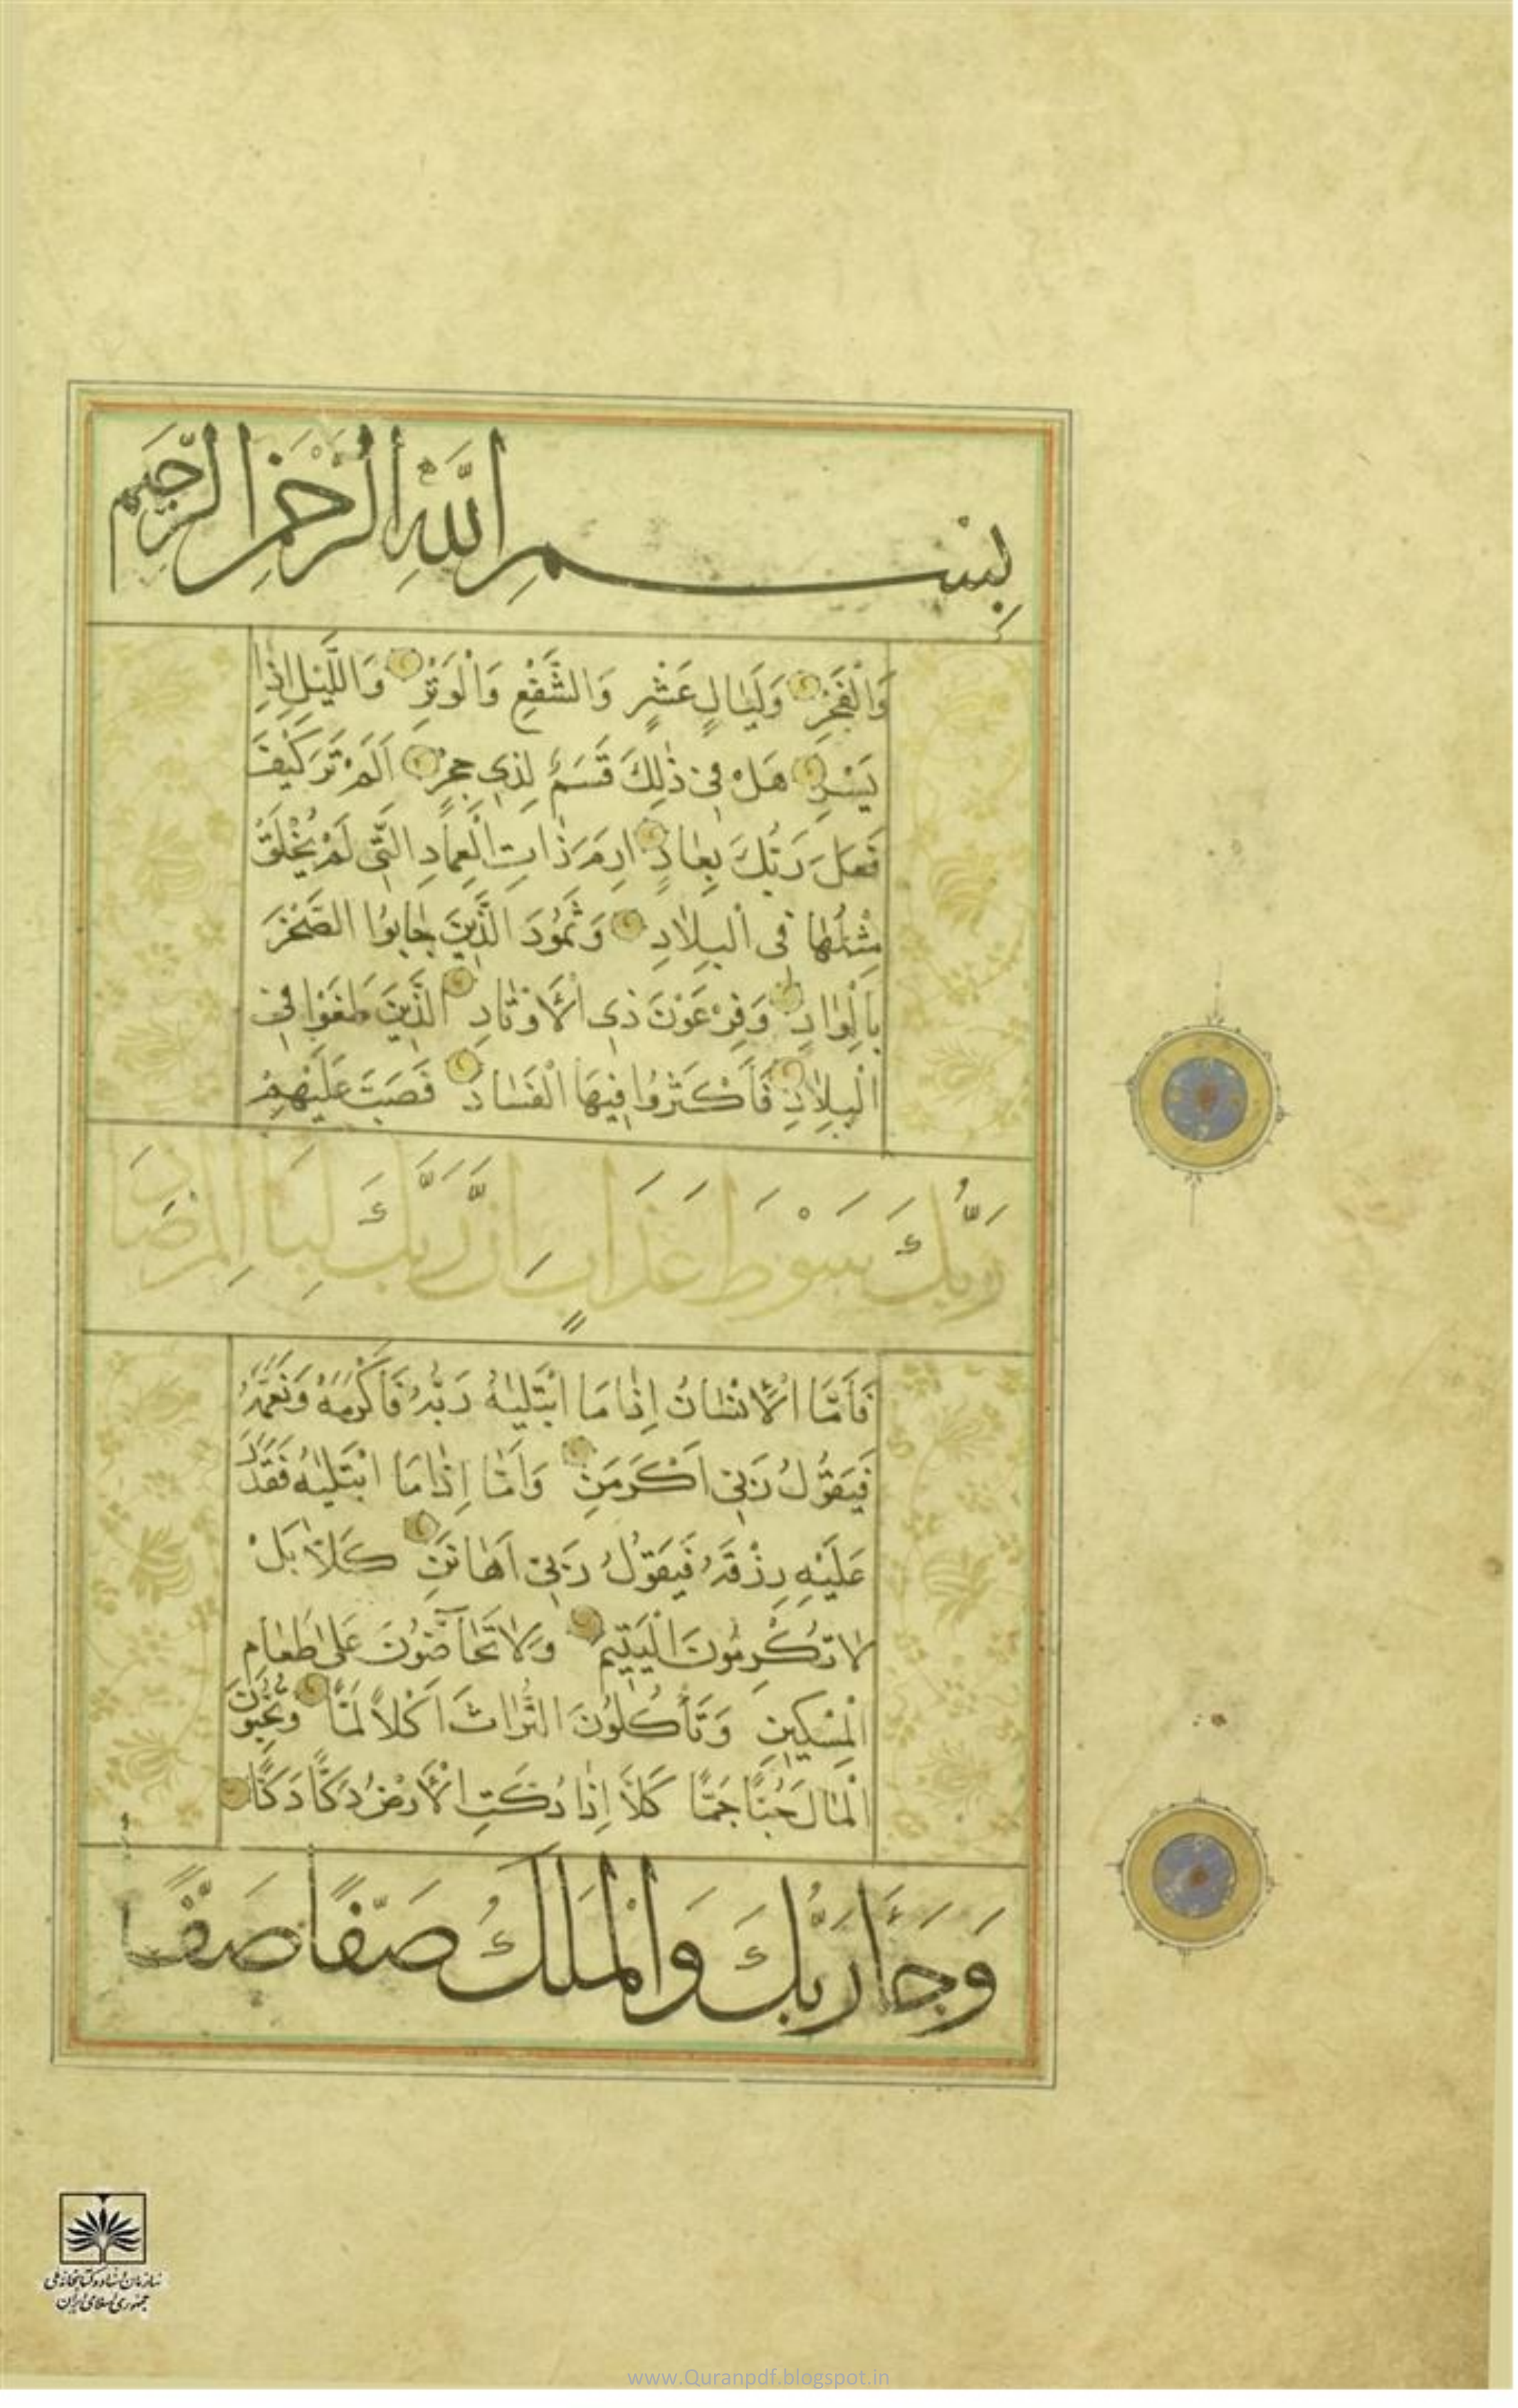 بِسْمِ اللَّهِ الرَّحْمٰنِ الرَّحِيمِ
وَالْفَجْرِ وَلَيَالٍ عَشْرٍ وَالشَّفْعِ وَالْوَتْرِ وَاللَّيْلِ اِذَا
يَسْرِ هَلْ فِي ذٰلِكَ قَسَمٌ لِذِي حِجْرٍ اَلَمْ تَرَ كَيْفَ
فَعَلَ رَبُّكَ بِعَادٍ اِرَمَ ذَاتِ الْعِمَادِ الَّتِي لَمْ يُخْلَقْ
مِثْلُهَا فِي الْبِلَادِ وَثَمُودَ الَّذِينَ جَابُوا الصَّخْرَ
بِالْوَادِ وَفِرْعَوْنَ ذِي الْأَوْتَادِ الَّذِينَ طَغَوْا فِي
الْبِلَادِ فَأَكْثَرُوا فِيهَا الْفَسَادَ فَصَبَّ عَلَيْهِمْ
رَبُّكَ سَوْطَ عَذَابٍ اِنَّ رَبَّكَ لَبِالْمِرْصَادِ
فَأَمَّا الْإِنْسَانُ اِذَا مَا ابْتَلَيٰهُ رَبُّهُ فَأَكْرَمَهُ وَنَعَّمَهُ
فَيَقُولُ رَبِّي اَكْرَمَنِ وَاَمَّا اِذَا مَا ابْتَلَيٰهُ فَقَدَرَ
عَلَيْهِ رِزْقَهُ فَيَقُولُ رَبِّي اَهَانَنِ كَلَّا بَلْ
لَا تُكْرِمُونَ الْيَتِيمَ وَلَا تَحَاضُّونَ عَلٰى طَعَامِ
الْمِسْكِينِ وَتَأْكُلُونَ التُّرَاثَ اَكْلًا لَمًّا وَتُحِبُّونَ
الْمَالَ حُبًّا جَمًّا كَلَّا اِذَا دُكَّتِ الْأَرْضُ دَكًّا دَكًّا
وَجَاءَ رَبُّكَ وَالْمَلَكُ صَفًّا صَفًّا
سازمان اسناد و کتابخانه ملی
جمهوری اسلامی ایران
www.Quranpdf.blogspot.in